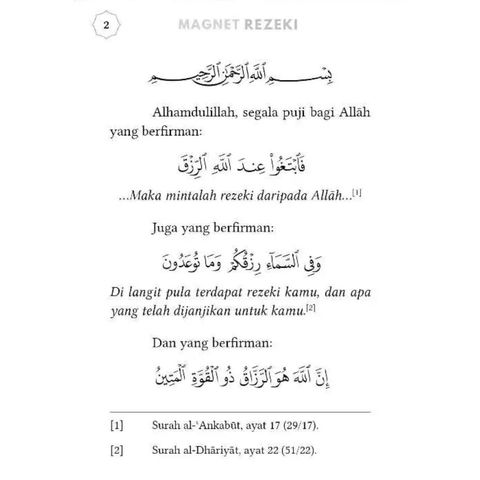 2
MAGNET REZEKI
بِسْمِ ٱللَّهِ ٱلرَّحْمَٰنِ ٱلرَّحِيمِ
Alhamdulillah, segala puji bagi Allāh
yang berfirman:
فَٱبْتَغُوا۟ عِندَ ٱللَّهِ ٱلرِّزْقَ
...Maka mintalah rezeki daripada Allāh...[1]
Juga yang berfirman:
وَفِى ٱلسَّمَآءِ رِزْقُكُمْ وَمَا تُوعَدُونَ
Di langit pula terdapat rezeki kamu, dan apa
yang telah dijanjikan untuk kamu.[2]
Dan yang berfirman:
إِنَّ ٱللَّهَ هُوَ ٱلرَّزَّاقُ ذُو ٱلْقُوَّةِ ٱلْمَتِينُ
[1] Surah al-ʿAnkabūt, ayat 17 (29/17).
[2] Surah al-Dhāriyāt, ayat 22 (51/22).